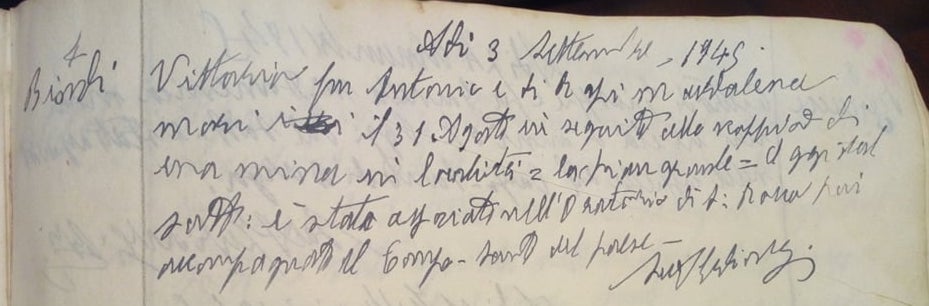 Adì 3 Settembre, 1945.
4
Biondi
Vittorio fu Antonio e di Maddalena
morì il 31 Agosto in seguito allo scoppio di
una mina in località = grande = Il
sett: è stato associato nell'Oratorio di S: Rocco poi
accompagnato al Campo-santo del paese -